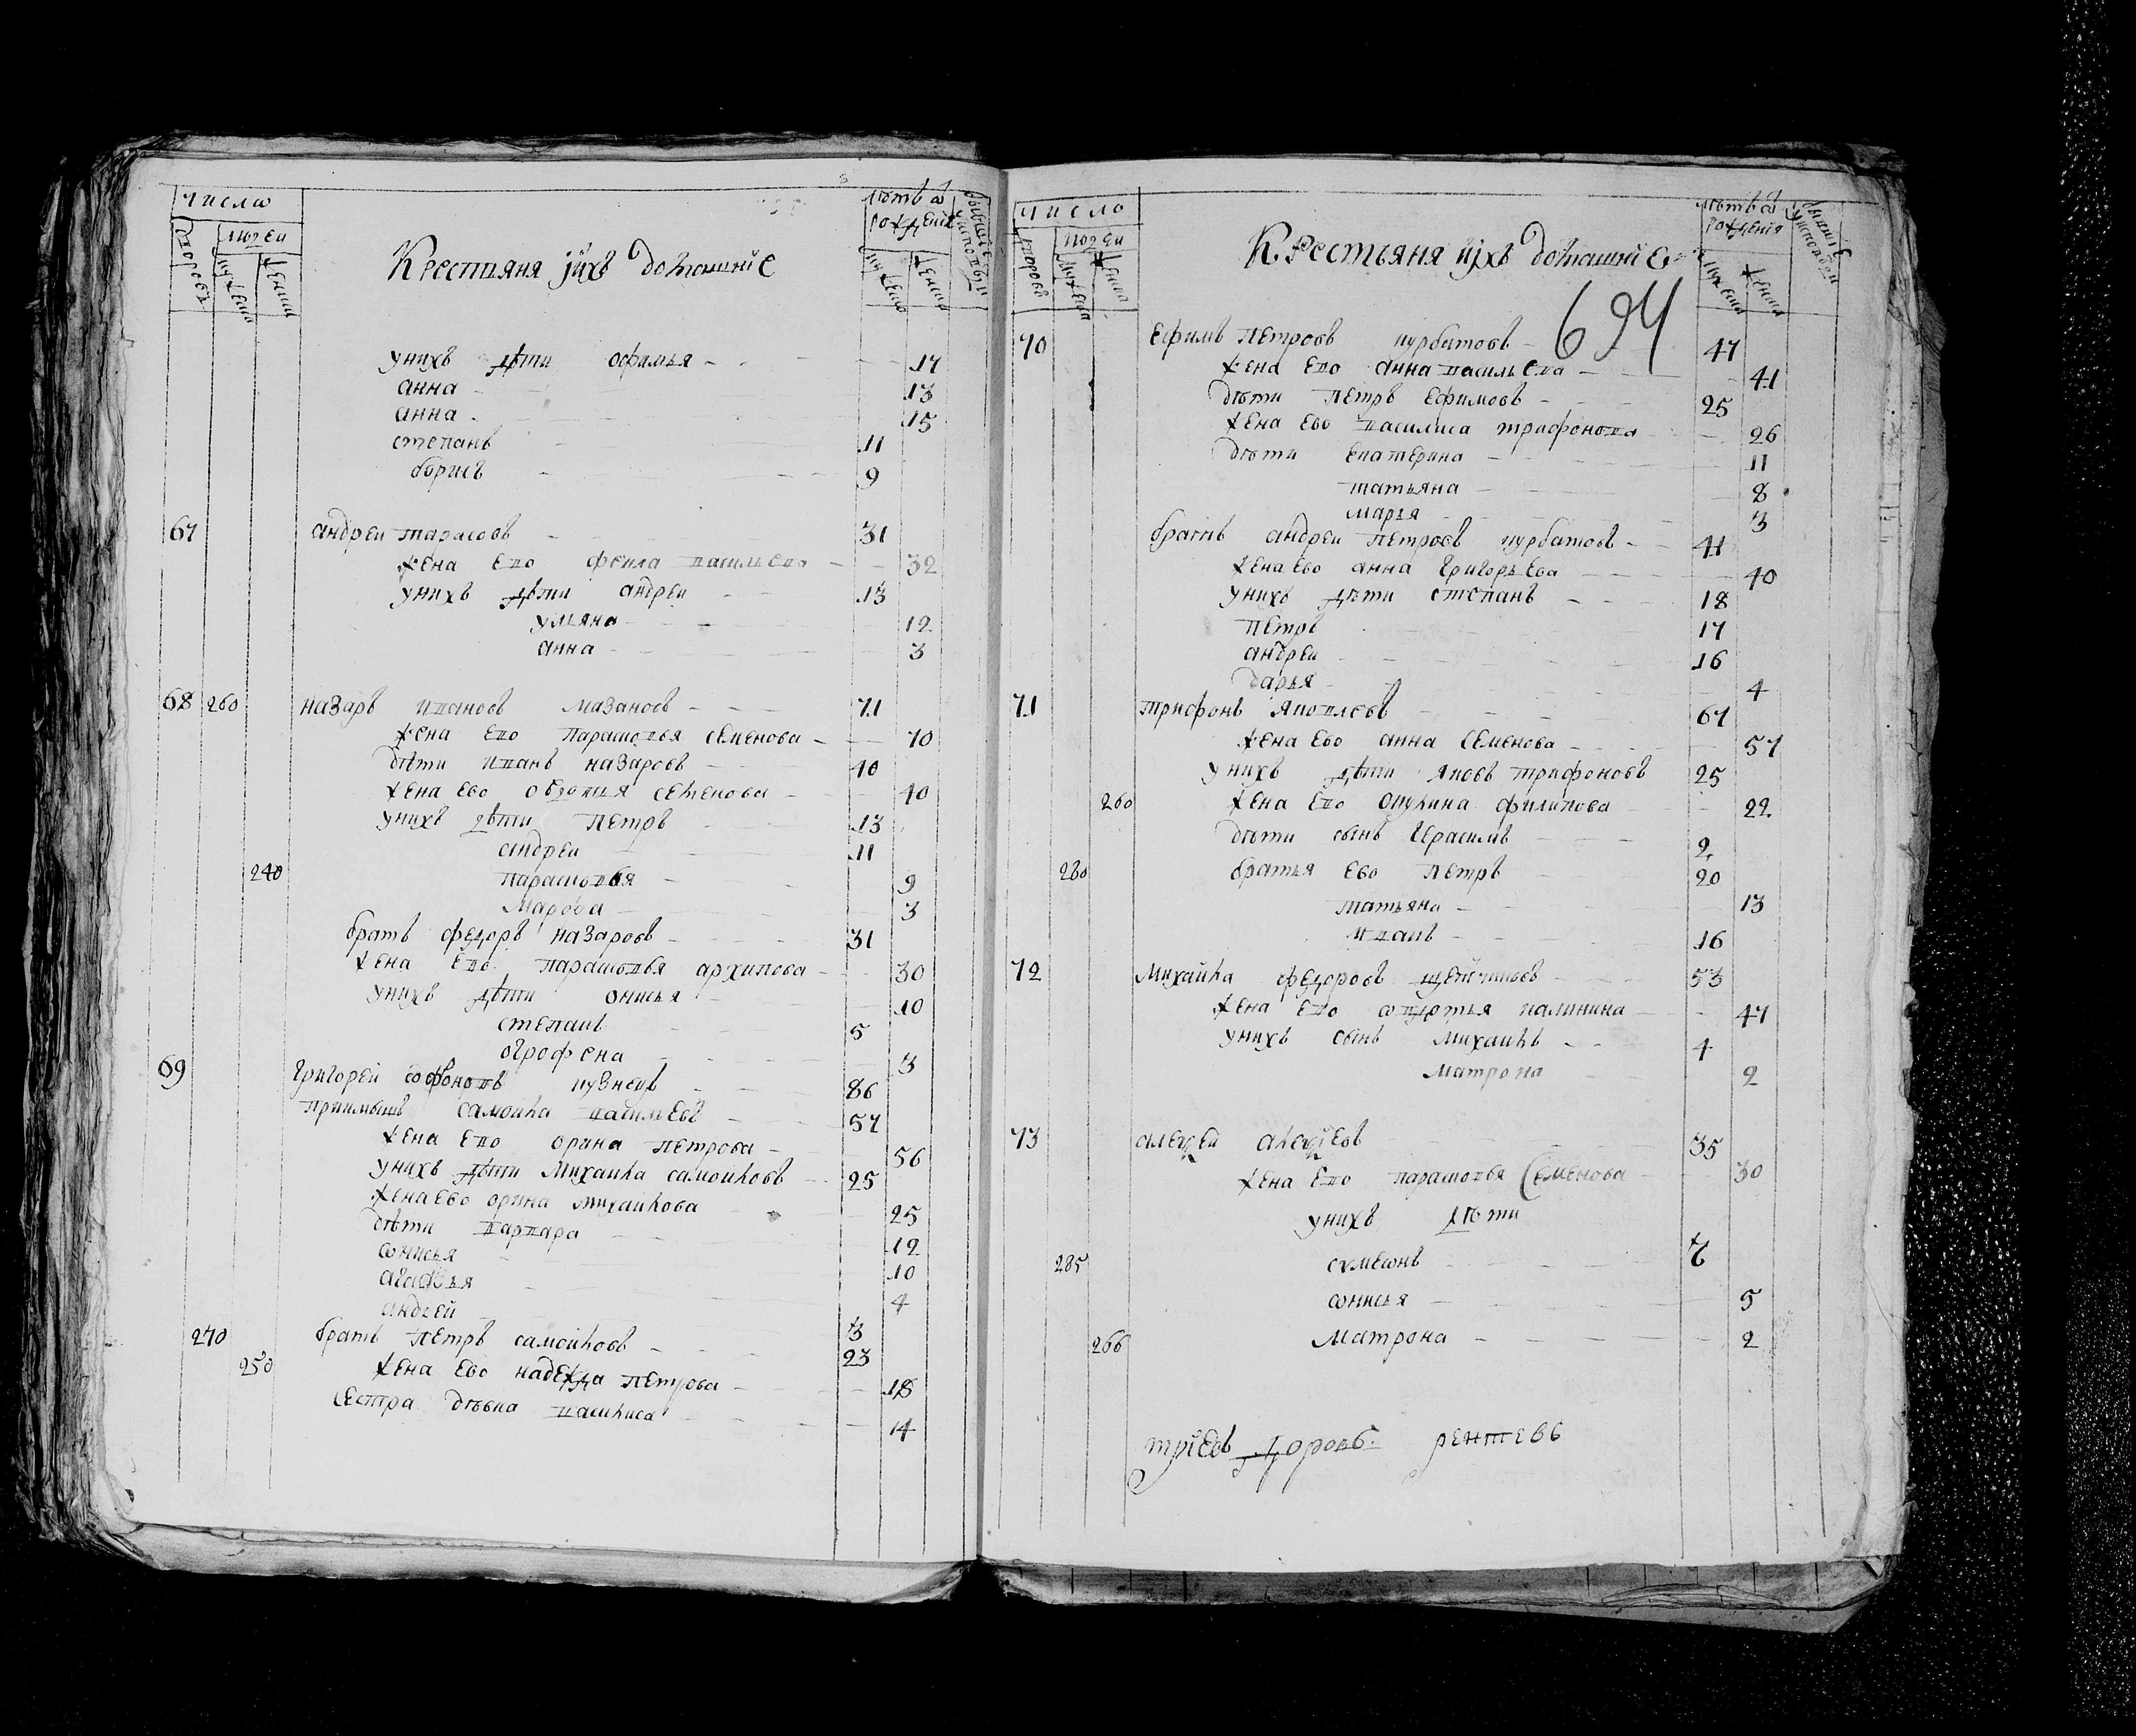 число
дворовъ
людей
мужеска
женска
Крестьяня ӥихъ домашнїе
лѣтъ ѿ рожденїя
мужеска
женска
бывшїе
унихъ дѣти офимья 17
анна 13
анна 15
степанъ 11
борисъ 9
67 андреи тарасовъ 31
жена ево фекла василева 32
унихъ дѣти андреи 13
уляна 12
анна 3
68 260 назаръ ивановъ мазановъ 71
жена ево парасковья семенова 70
дѣти иванъ назаровъ 40
жена ево овдотия семенова 40
унихъ дѣти петръ 13
андреи 11
240 парасковья 9
марфа 3
братъ федоръ назаровъ 31
жена ево парасковья архипова 30
унихъ дѣти онисья 10
степанъ 5
огрофена 3
69 григорей софоновъ кузнецъ 86
приимышъ самоила васильевъ 57
жена ево орина петрова 56
унихъ дѣти михаила самоиловъ 25
жена ево орина михаилова 25
дѣти варвара 12
ѡнисья 10
агафья 4
андрей 3
270 братъ петръ самоиловъ 23
250 жена ево надежда петрова 18
сестра дѣвка василиса 14
число
дворовъ
людеи
мужеска
женска
Крестьяня ӥихъ домашнїе
лѣтъ ѿ рожденїя
мужеска
женска
694
70 ефимъ петровъ курбатовъ 47
жена ево анна василева 41
дѣти петръ ефимовъ 25
жена ево василиса трифонова 26
дѣти екатерина 11
татьяна 8
марья 3
братъ андреи петровъ курбатовъ 41
жена ево анна григорьева 40
унихъ дѣти степанъ 18
петръ 17
андреи 16
дарья 4
71 трифонъ яковлевъ 67
жена ево анна семенова 57
унихъ дѣти яковъ трифоновъ 25
260 жена ево окулина филипова 22
дѣти сынъ герасимъ 2
280 братья ево петръ 20
татьяна 13
иванъ 16
72 михайла федоровъ 53
жена ево калинина 47
унихъ сынъ михаилъ 4
матрона 2
73 алеѯей алеѯїевъ 35
жена ево парасковья семенова 30
унихъ дѣти
285 сѵмеѡнъ 7
ѡнисья 5
266 матрона 2
дворовъ